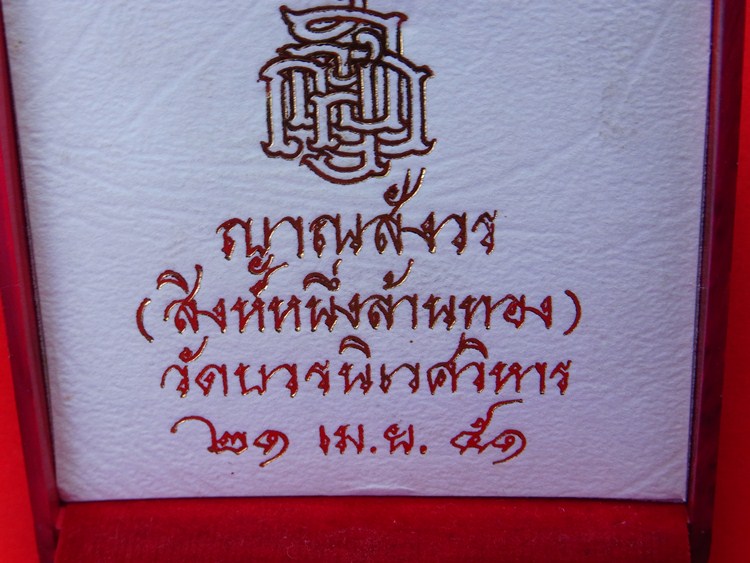 ญาณสังวร
(สิงห์หนึ่งล้านทอง)
วัดบวรนิเวศวิหาร
๒๑ เม.ย. ๕๑